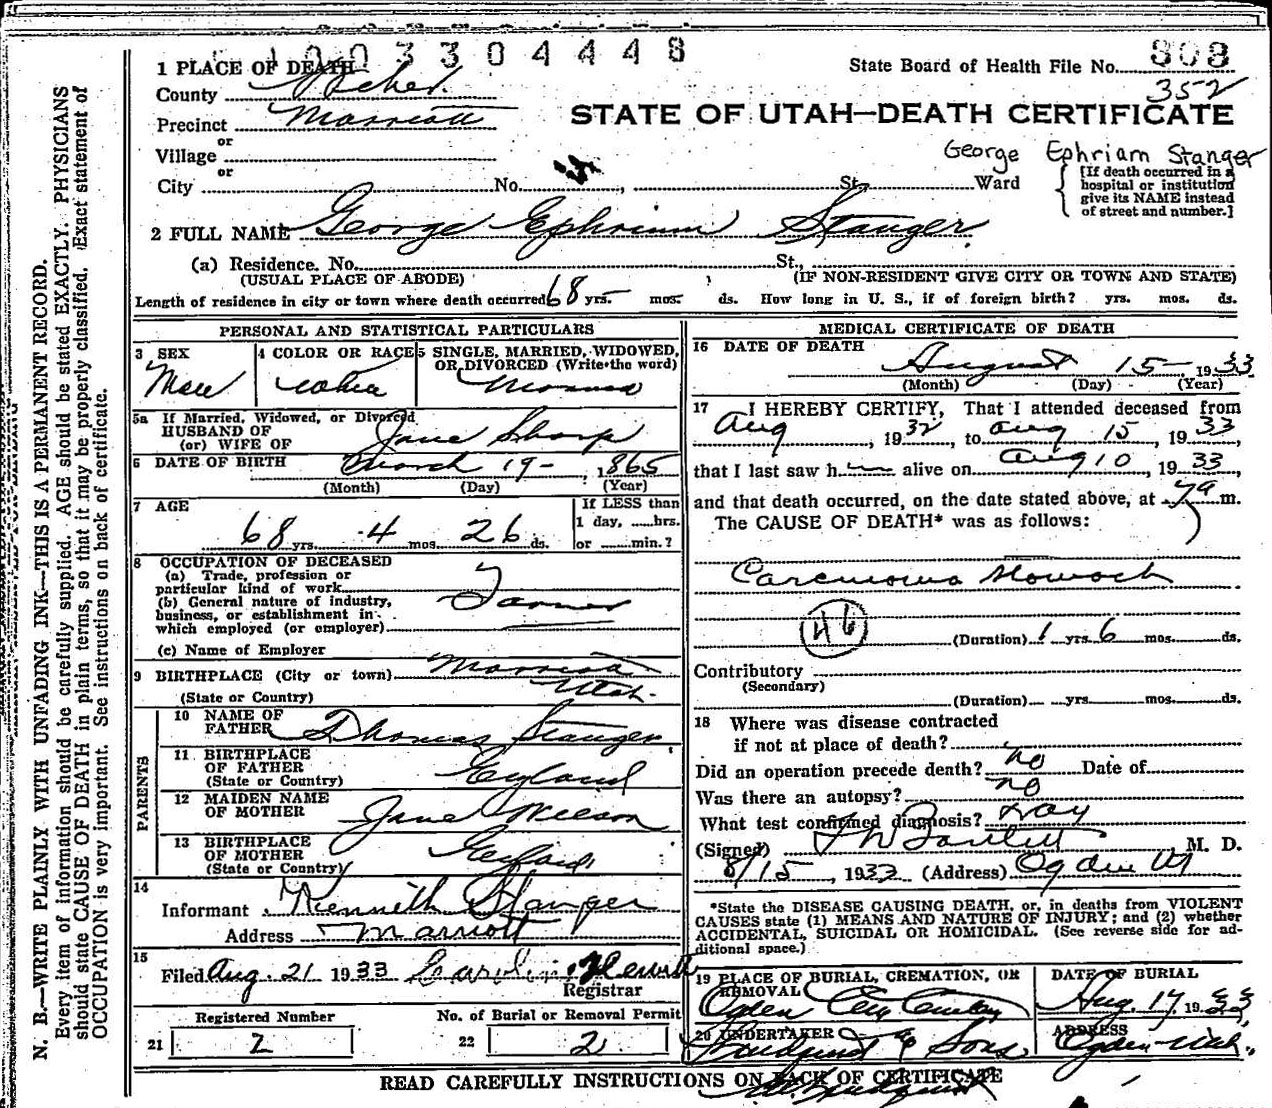 1003304448
808
1 PLACE OF DEATH
State Board of Health File No.
352
County Weber.
Precinct Marriott
STATE OF UTAH—DEATH CERTIFICATE
or
Village
or
George Ephriam Stanger
City No. , St. Ward
[If death occurred in a hospital or institution give its NAME instead of street and number.]
2 FULL NAME George Ephrium Stanger.
(a) Residence. No. St.,
(USUAL PLACE OF ABODE) (IF NON-RESIDENT GIVE CITY OR TOWN AND STATE)
Length of residence in city or town where death occurred 68 yrs. mos. ds. How long in U. S., if of foreign birth? yrs. mos. ds.
PERSONAL AND STATISTICAL PARTICULARS
3 SEX
Male
4 COLOR OR RACE
White
5 SINGLE, MARRIED, WIDOWED, OR DIVORCED (Write the word)
Married
5a If Married, Widowed, or Divorced
HUSBAND OF
(or) WIFE OF
Jane Sharp
6 DATE OF BIRTH March 19- 1865
(Month) (Day) (Year)
7 AGE
68 yrs. 4 mos. 26 ds.
If LESS than
1 day, hrs.
or min.?
8 OCCUPATION OF DECEASED
(a) Trade, profession or
particular kind of work
Farmer
(b) General nature of industry,
business, or establishment in
which employed (or employer)
(c) Name of Employer
9 BIRTHPLACE (City or town) Marriott
(State or Country) Utah.
PARENTS
10 NAME OF
FATHER Thomas Stanger
11 BIRTHPLACE
OF FATHER
(State or Country)
England
12 MAIDEN NAME
OF MOTHER Jane Wilson
13 BIRTHPLACE
OF MOTHER
(State or Country)
England
14
Informant Kenneth Stanger
Address Marriott
15
Filed Aug. 21 1933
Registrar
Registered Number
21 2
No. of Burial or Removal Permit
22 2
MEDICAL CERTIFICATE OF DEATH
16 DATE OF DEATH
August 15- 1933
(Month) (Day) (Year)
17 I HEREBY CERTIFY, That I attended deceased from
Aug , 1932 to Aug 15 , 1933
that I last saw h alive on Aug 10 , 1933,
and that death occurred, on the date stated above, at 7a m.
The CAUSE OF DEATH* was as follows:
Carcinoma Stomach
46
(Duration) 1 yrs. 6 mos. ds.
Contributory
(Secondary)
(Duration) yrs. mos. ds.
18 Where was disease contracted
if not at place of death?
Did an operation precede death? no Date of
Was there an autopsy? no
What test confirmed diagnosis? Xray
(Signed) M. D.
8/15 , 1933 (Address) Ogden Ut
*State the DISEASE CAUSING DEATH, or, in deaths from VIOLENT
CAUSES state (1) MEANS AND NATURE OF INJURY; and (2) whether
ACCIDENTAL, SUICIDAL OR HOMICIDAL. (See reverse side for ad-
ditional space.)
19 PLACE OF BURIAL, CREMATION, OR
REMOVAL
Ogden City Cemetery
DATE OF BURIAL
Aug. 17, 1933,
20 UNDERTAKER
Lindquist & Sons
ADDRESS
Ogden-Utah.
READ CAREFULLY INSTRUCTIONS ON BACK OF CERTIFICATE
Lindquist
N. B.—WRITE PLAINLY WITH UNFADING INK—THIS IS A PERMANENT RECORD.
Every item of information should be carefully supplied. AGE should be stated EXACTLY. PHYSICIANS
should state CAUSE OF DEATH in plain terms, so that it may be properly classified. Exact statement of
OCCUPATION is very important. See instructions on back of certificate.